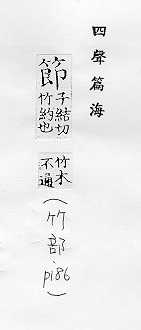 四聲篇海
節 子結切 竹約也 竹木不通
(竹部、p186)